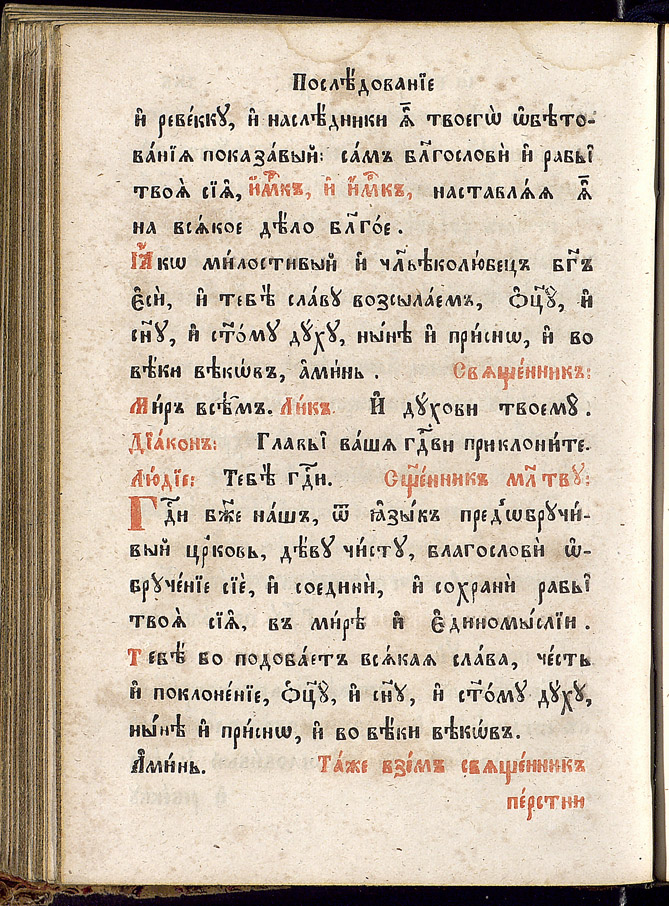 Послѣ́дованїе
и҆ реве́ккꙋ, и҆ наслѣ́дники ѧ҆̀ твоегѡ̀ ѡ҆бѣ́то-
ва́нїѧ показа́вый: са́мъ бл҃гословѝ и҆ рабы̑
твоѧ̑ сїѧ̑, и҆м҃къ, и҆ и҆м҃къ, наставлѧ́ѧ ѧ҆̀
на всѧ́кое дѣ́ло бл҃го́е.
Ꙗ҆́кѡ ми́лостивый и҆ чл҃ѣколю́бецъ бг҃ъ
є҆сѝ, и҆ тебѣ̀ сла́вꙋ возсыла́емъ, ѻ҆ц҃ꙋ̀, и҆
сн҃ꙋ, и҆ ст҃о́мꙋ дꙋ́хꙋ, ны́нѣ и҆ при́снѡ, и҆ во
вѣ́ки вѣкѡ́въ, а҆ми́нь. Свѧще́нникъ:
Ми́ръ всѣ̑мъ. Ли́къ. И҆ дꙋ́хови твоемꙋ̀.
Дїа́конъ: Главы̑ ва́шѧ гд҇ви приклони́те.
Лю́дїе: Тебѣ̀ гд҇и. Сщ҃е́нникъ мл҃твꙋ:
Гд҇и бж҃е на́шъ, ѿ ꙗ҆зы̑къ пред̾ѡбрꙋчи́-
вый цр҃ковь, дѣ́вꙋ чи́стꙋ, благословѝ ѡ҆-
брꙋче́нїе сїѐ, и҆ соединѝ, и҆ сохранѝ рабы̑
твоѧ̑ сїѧ̑, въ ми́рѣ и҆ є҆диномы́слїи.
Тебѣ́ бо подоба́етъ всѧ́каѧ сла́ва, че́сть
и҆ поклоне́нїе, ѻ҆ц҃ꙋ̀, и҆ сн҃ꙋ, и҆ ст҃о́мꙋ дꙋ́хꙋ,
ны́нѣ и҆ при́снѡ, и҆ во вѣ́ки вѣкѡ́въ.
А҆ми́нь. Та́же взе́мъ свѧще́нникъ
пе́рстни